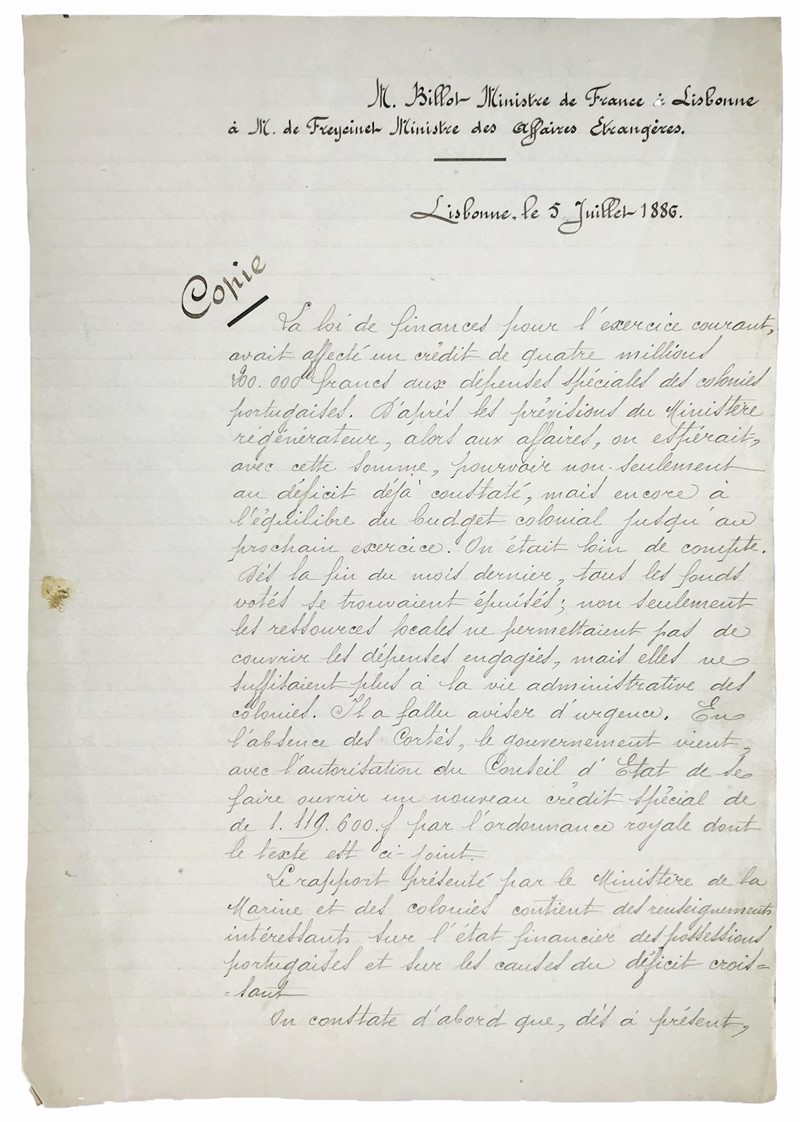 M. Billot Ministre de France à Lisbonne
à M. de Freycinet Ministre des Affaires Etrangères.
Lisbonne, le 5 Juillet 1886.
Copie
La loi de finances pour l'exercice courant,
avait affecté un crédit de quatre millions
200.000 francs aux dépenses spéciales des colonies
portugaises. D'après les prévisions du Ministère
régénérateur, alors aux affaires, on espérait,
avec cette somme, pourvoir non-seulement
au déficit déjà constaté, mais encore à
l'équilibre du budget colonial jusqu'au
prochain exercice. On était loin de compte.
Dès la fin du mois dernier, tous les fonds
votés se trouvaient épuisés; non seulement
les ressources locales ne permettaient pas de
couvrir les dépenses engagées, mais elles ne
suffisaient plus à la vie administrative des
colonies. Il a fallu aviser d'urgence. En
l'absence des Cortés, le gouvernement vient,
avec l'autorisation du Conseil d'Etat de se
faire ouvrir un nouveau crédit spécial de
de 1.119.600.f par l'ordonnance royale dont
le texte est ci-joint.
Le rapport présenté par le Ministère de la
Marine et des colonies contient des renseignements
intéressants sur l'état financier des possessions
portugaises et sur les causes du déficit crois=
=sant
On constate d'abord que, dès à présent,